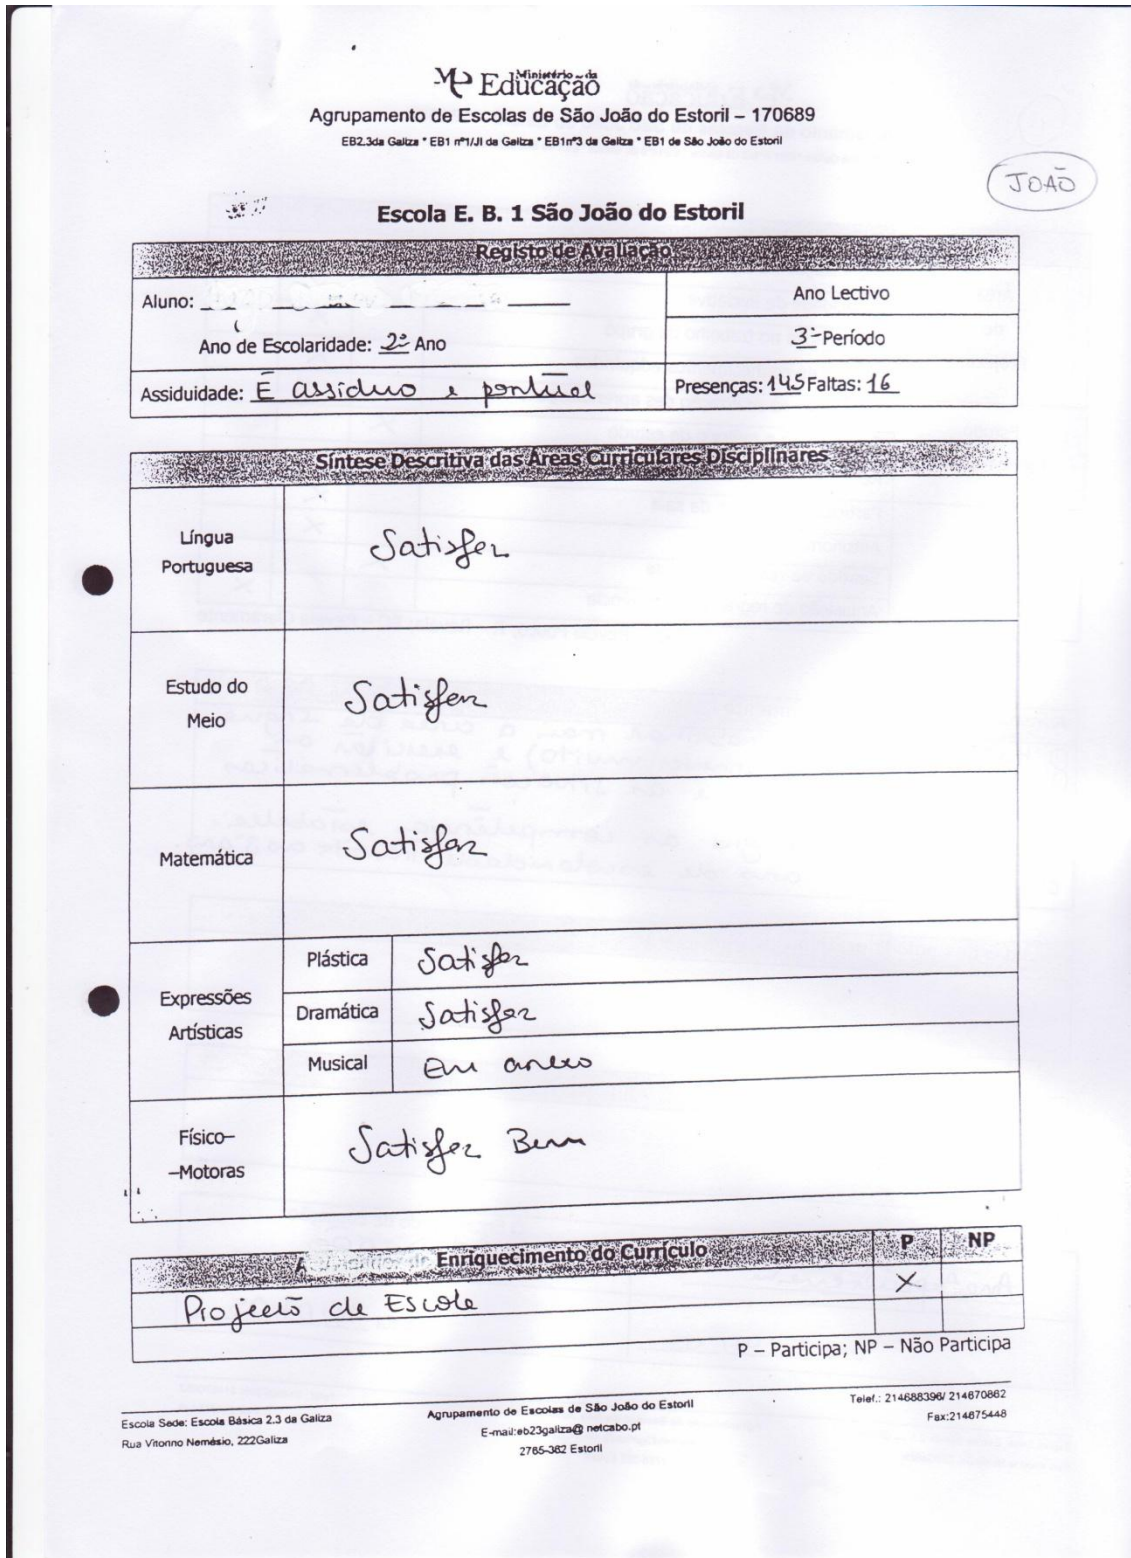 Ministério da
Educação
Agrupamento de Escolas de São João do Estoril – 170689
EB2.3da Galiza * EB1 nº1/JI da Galiza * EB1nº3 da Galiza * EB1 de São João do Estoril
JOÃO
Escola E. B. 1 São João do Estoril
Registo de Avaliação
Aluno:
Ano Lectivo
Ano de Escolaridade: 2º Ano
3º Período
Assiduidade: É assíduo e pontual
Presenças: 145 Faltas: 16
Síntese Descritiva das Áreas Curriculares Disciplinares
Língua
Portuguesa
Satisfaz
Estudo do
Meio
Satisfaz
Matemática
Satisfaz
Expressões
Artísticas
Plástica
Satisfaz
Dramática
Satisfaz
Musical
Em anexo
Físico–
–Motoras
Satisfaz Bem
Enriquecimento do Currículo
P
NP
Projecto de Escola
X
P – Participa; NP – Não Participa
Escola Sede: Escola Básica 2.3 da Galiza
Rua Vitorino Nemésio, 222Galiza
Agrupamento de Escolas de São João do Estoril
E-mail:eb23galiza@ netcabo.pt
2765-382 Estoril
Telef.: 214688396/ 214670862
Fax:214675448